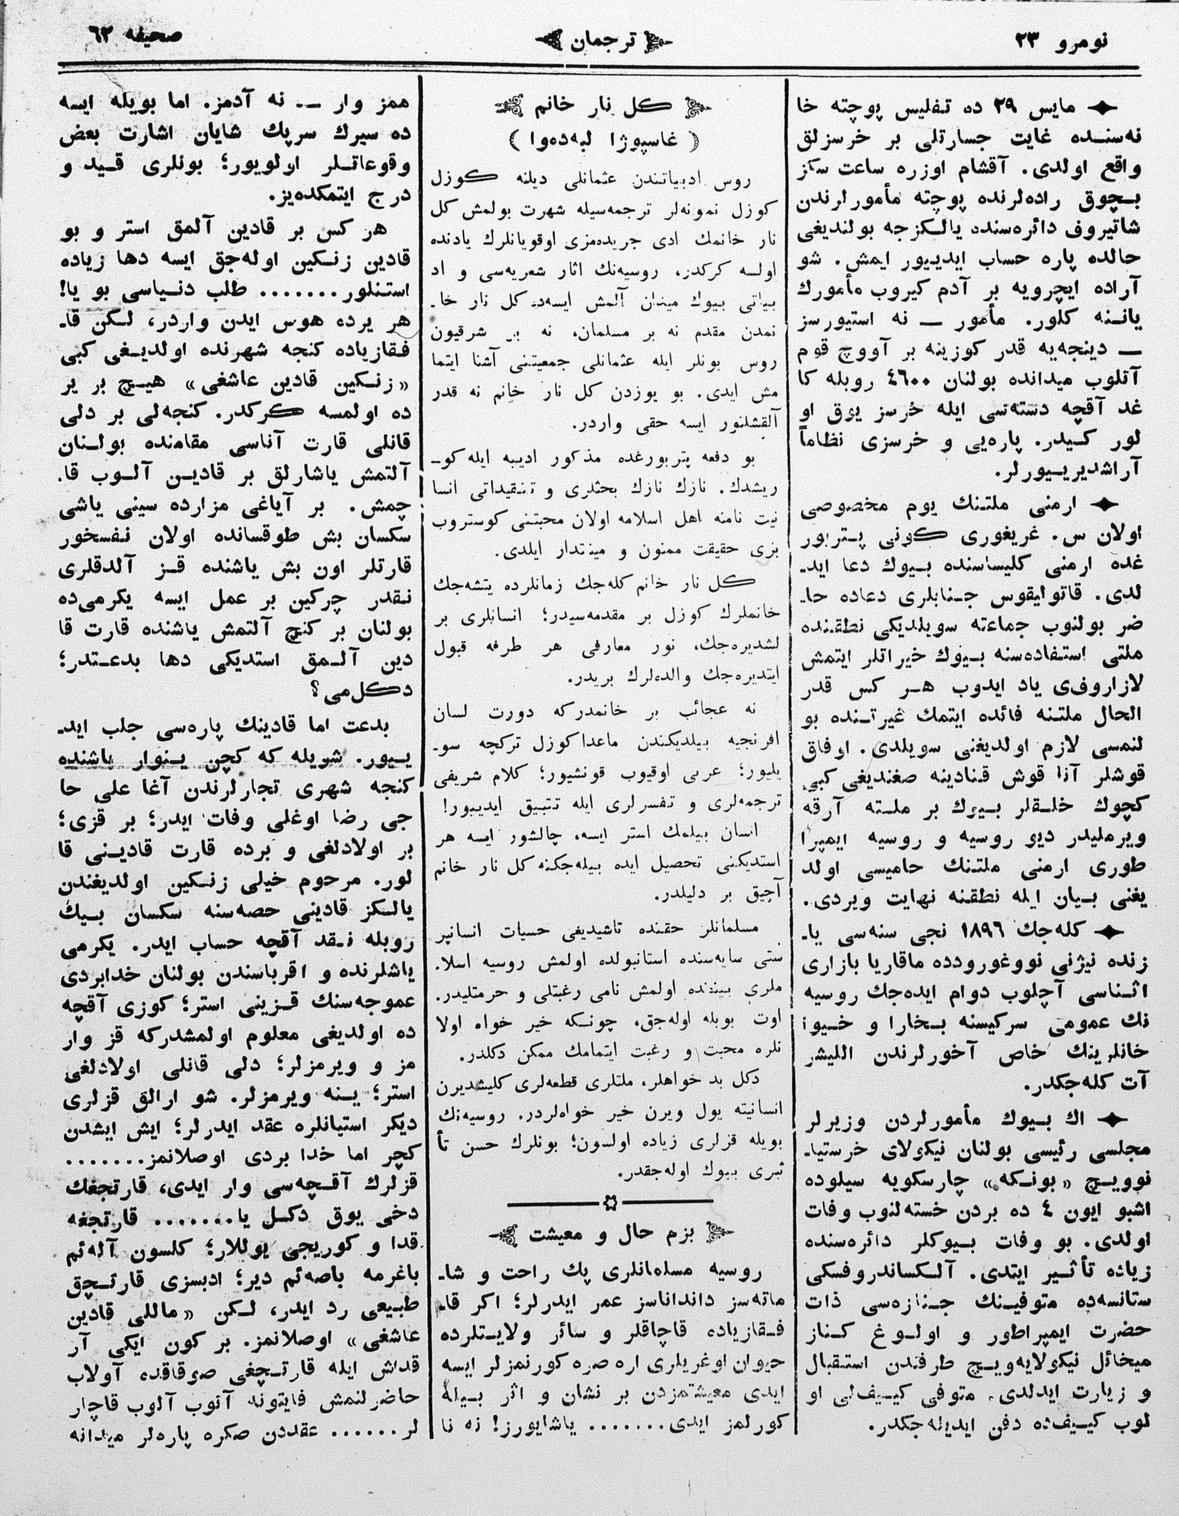 نومرو ٢٣
ترجمان
صحيفه ٦٢
مايس ٢٩ ده تفليس پوچته خا
نه‌سنده غايت جسارتلى بر خرسزلق
واقع اولدى. آقشام اوزره ساعت سكز
بچوق راده‌لرنده پوچته مأمورلرندن
شاتيروف دائره‌سنده يالكزجه بولنديغى
حالده پاره حساب ايدييور ايمش. شو
آراده ايچرويه بر آدم كيروب مأمورك
يانه كلور. مأمور — نه استيورسز
— دينجه‌يه قدر كوزينه بر آووچ قوم
آتلوب ميدانده بولنان ٤٦٠٠ روبله كا
غد آقچه دسته‌سى ايله خرسز يوق او
لور كيدر. پاره‌يى و خرسزى نظاماً
آراشديريورلر.
ارمنى ملتنك يوم مخصوصى
اولان س. غريغورى كونى پتربور
غده ارمنى كليساسنده بيوك دعا ايد-
لدى. قاتوليقوس جنابلرى دعاده حا-
ضر بولنوب جماعته سويلديكى نطقنده
ملتى استفاده‌سنه بيوك خيراتلر ايتمش
لازاروف‌ى ياد ايدوب هر كس قدر
الحال ملتنه فائده ايتمك غيرتنده بو
لنمسى لازم اولديغنى سويلدى. اوفاق
قوشلر آنا قوش قنادينه صغنديغى كبى
كچوك خلقلر بيوك بر ملته آرقه
ويرمليدر ديو روسيه و روسيه ايمپرا
طورى ارمنى ملتنك حاميسى اولد
يغنى بيان ايله نطقنه نهايت ويردى.
كله‌جك ١٨٩٦ نجى سنه‌سى يا-
زنده نيژنى نووغورودده ماقاريا بازارى
اثناسى آچلوب دوام ايده‌جك روسيه
نك عمومى سركيسنه بخارا و خيوا
خانلرينك خاص آخورلرندن الليشر
آت كله‌جكدر.
اك بيوك مأمورلردن وزيرلر
مجلسى رئيسى بولنان نيكولاى خرستيا-
نوويچ «بونكه» چارسكويه سيلوده
اشبو ايون ٤ ده بردن خسته‌لنوب وفات
اولدى. بو وفات بيوكلر دائره‌سنده
زياده تأثير ايتدى. آلكساندروفسكى
ستانسه‌ده متوفينك جنازه‌سى ذات
حضرت ايمپراطور و اولوغ كناز
ميخائل نيكولايه‌ويچ طرفندن استقبال
و زيارت ايدلدى. متوفى كيف‌لى او
لوب كيف‌ده دفن ايديله‌جكدر.
كل نار خانم
( غاسپوژا لبه‌ده‌وا )
روس ادبياتندن عثمانلى ديلنه كوزل
كوزل نمونه‌لر ترجمه‌سيله شهرت بولمش كل
نار خانمك ادى جريده‌مزى اوقويانلرك يادنده
اولسه كركدر. روسيه‌نك اثار شعريه‌سى و اد
بياتى بيوك ميدان آلمش ايسه‌ده كل نار خا-
نمدن مقدم نه بر مسلمان، نه بر شرقيون
روس بونلر ايله عثمانلى جمعيتنى آشنا ايتما
مش ايدى. بو يوزدن كل نار خانم نه قدر
آلقشلنور ايسه حقى واردر.
بو دفعه پتربورغده مذكور اديبه ايله كو-
ريشدك. نازك نازك بحثلرى و تنقيداتى انسا
نيت نامنه اهل اسلامه اولان محبتنى كوستروب
بزى حقيقت ممنون و مينتدار ايلدى.
كل نار خانم كله‌جك زمانلرده يتشه‌جك
خانملرك كوزل بر مقدمه‌سيدر؛ انسانلرى بر
لشديره‌جك، نور معارفى هر طرفه قبول
ايتديره‌جك والده‌لرك بريدر.
نه عجائب بر خانمدركه دورت لسان
افرنجيه بيلديكندن ماعدا كوزل تركچه سو-
يليور؛ عربى اوقيوب قونشيور؛ كلام شريفى
ترجمه‌لرى و تفسرلرى ايله تتبيق ايدييور!
انسان بيلمك استر ايسه، چالشور ايسه هر
استديكنى تحصيل ايده بيله‌جكنه كل نار خانم
آچيق بر دليلدر.
مسلمانلر حقنده تاشيديغى حسيات انسانپر
ستى سايه‌سنده استانبولده اولمش روسيه اسلا-
ملرى بيننده اولمش نامى رغبتلى و حرمتليدر.
اوت بويله اوله‌جق. چونكه خير خواه اولا
نلره محبت و رغبت ايتمامك ممكن دكلدر.
دكل بد خواهلر، ملتلرى قطعه‌لرى كليشديرن
انسانيته يول ويرن خير خواه‌لردر. روسيه‌نك
بويله قزلرى زياده اولسون؛ بونلرك حسن تأ
ثيرى بيوك اوله‌جقدر.
بزم حال و معيشت
روسيه مسلمانلرى پك راحت و شا-
ماته‌سز دانداناسز عمر ايدرلر؛ اكر قا-
فقازياده قاچاقلر و سائر ولايتلرده
حيوان اوغريلرى اره صره كورنمزلر ايسه
ايدى معيشتمزدن بر نشان و اثر بيله
كورلمز ايدى....... ياشايورز! نه نا
همز وار —. نه آدمز. اما بويله ايسه
ده سيرك سرپك شايان اشارت بعض
وقوعاتلر اولويور؛ بونلرى قيد و
درج ايتمكده‌يز.
هر كس بر قادين آلمق استر و بو
قادين زنكين اوله‌جق ايسه دها زياده
استنلور....... طلب دنياسى بو يا!
هر يرده هوس ايدن واردر، لكن قا-
فقازياده كنجه شهرنده اولديغى كبى
«زنكين قادين عاشغى» هيچ بر ير
ده اولمسه كركدر. كنجه‌لى بر دلى
قانلى قارت آناسى مقامنده بولنان
آلتمش ياشارلق بر قادين آلوب قا-
چمش. بر آياغى مزارده سينى ياشى
سكسان بش طوقسانده اولان نفسخور
قارتلر اون بش ياشنده قز آلدقلرى
نقدر چركين بر عمل ايسه يكرمى‌ده
بولنان بر كنج آلتمش ياشنده قارت قا
دين آلمق استديكى دها بدعتدر؛
دكل‌مى؟
بدعت اما قادينك پاره‌سى جلب ايد-
ييور. شويله كه كچن ينوار باشنده
كنجه شهرى تجارلرندن آغا على حا
جى رضا اوغلى وفات ايدر؛ بر قزى؛
بر اولادلغى و برده قارت قادينى قا
لور. مرحوم خيلى زنكين اولديغندن
يالكز قادينى حصه‌سنه سكسان بيك
روبله نقد آقچه حساب ايدر. يكرمى
ياشلرنده و اقرباسندن بولنان خدابردى
عموجه‌سنك قزينى استر؛ كوزى آقچه
ده اولديغى معلوم اولمشدركه قز وار
مز و ويرمزلر؛ دلى قانلى اولادلغى
استر؛ ينه ويرمزلر. شو ارالق قزلرى
ديكر استيانلره عقد ايدرلر؛ ايش ايشدن
كچر اما خدا بردى اوصلانمز.......
قزلرك آقچه‌سى وار ايدى، قارتجغك
دخى يوق دكل يا....... قارتجغه
قدا و كوريجى يوللار؛ كلسون آله‌ئم
باغرمه باصه‌ئم دير؛ ادبسزى قارتچق
طبيعى رد ايدر، لكن «ماللى قادين
عاشغى» اوصلانمز. بر كون ايكى آر
قداش ايله قارتچغى صوقاقده آولاب
حاضرلنمش فايتونه آتوب آلوب قاچار
لر...... عقددن صكره پاره‌لر ميدانه